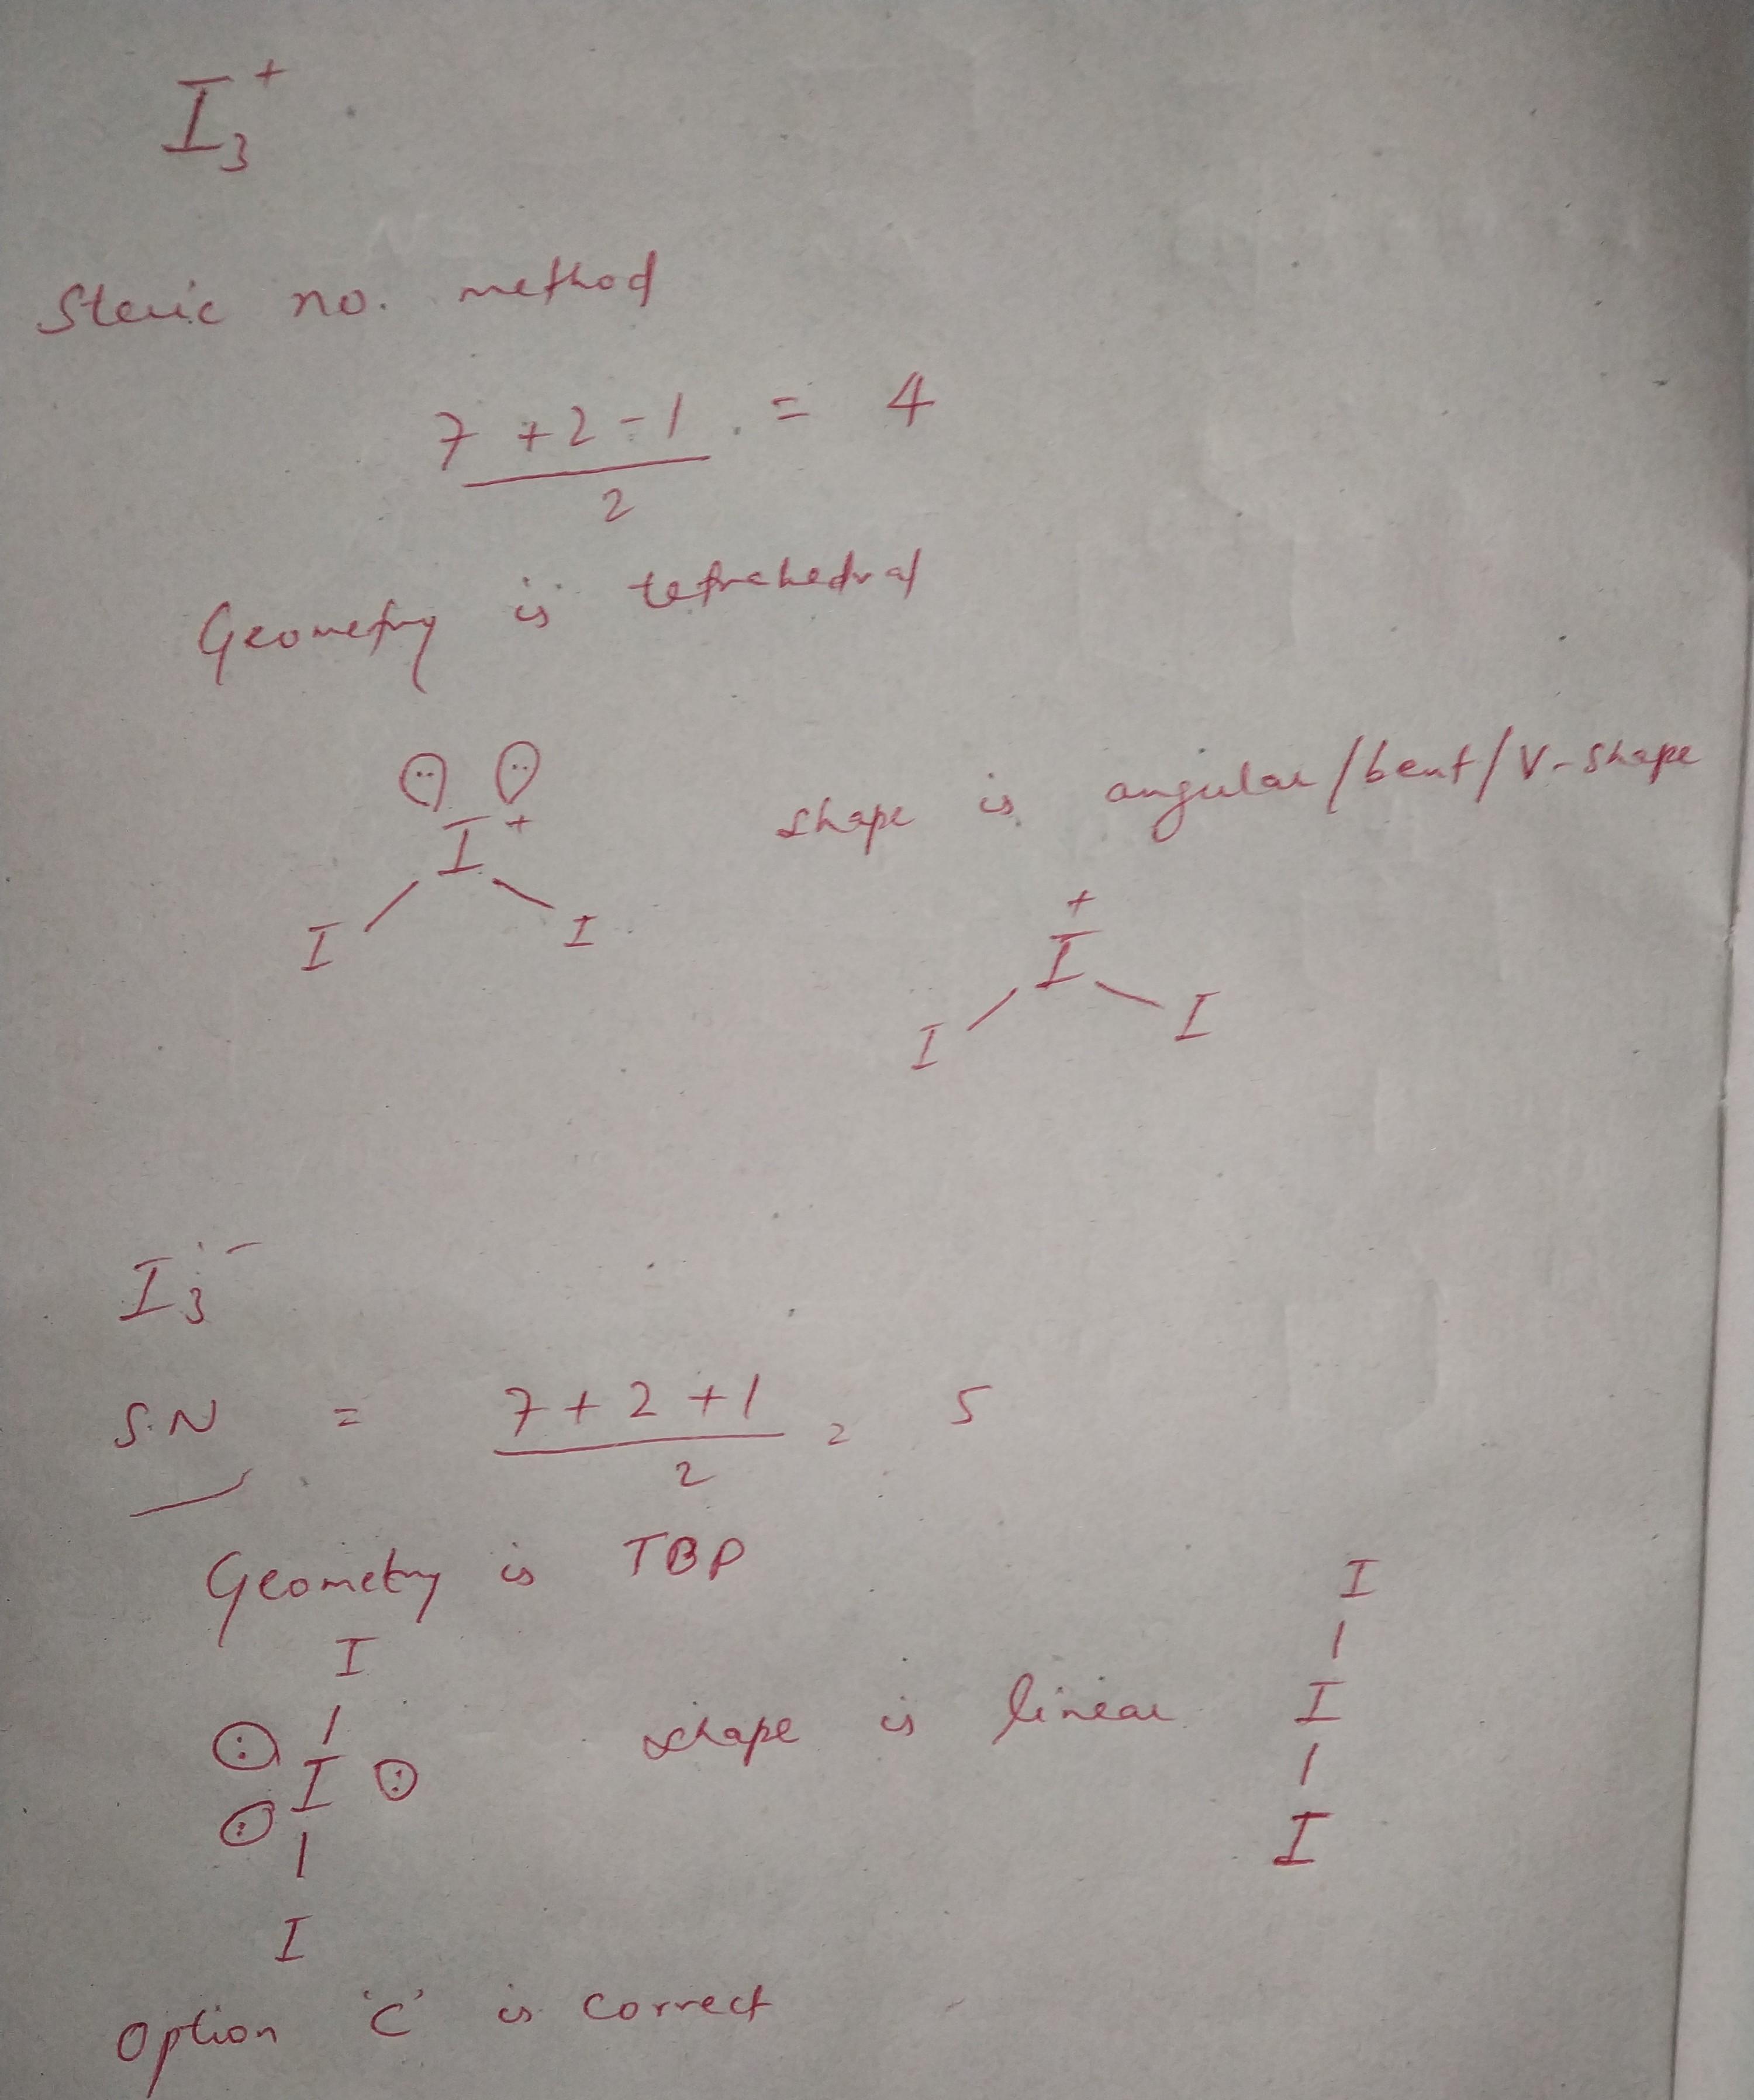 I₃⁺
Steric no. method
7 + 2 - 1 = 4
2
Geometry is tetrahedral
I⁺
I I
shape is angular/bent/V-shape
+
I
I I
I₃⁻
S.N = 7 + 2 + 1 = 5
2
Geometry is TBP
I
I
I
shape is linear
I
I
I
Option 'C' is correct